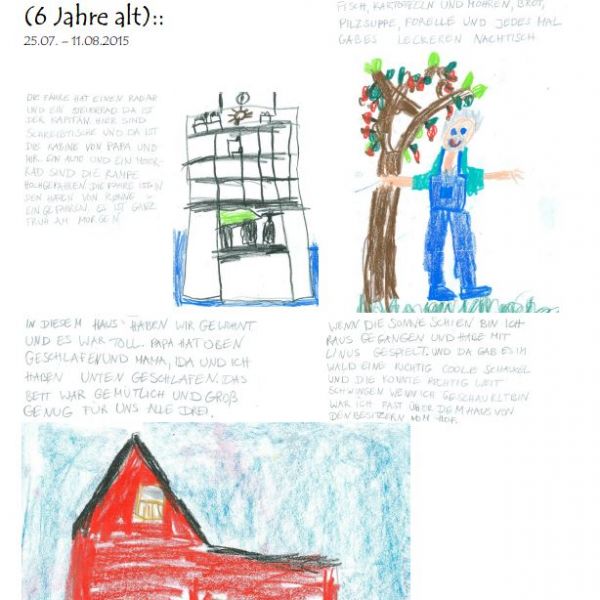 (6 Jahre alt)::
25.07. – 11.08.2015
FISCH, KARTOFFELN UND MÖHREN, BROT,
PILZSUPPE, FORELLE UND JEDES MAL
GABES LECKEREN NACHTISCH
DIE FÄHRE HAT EINEN RADAR
UND EIN STEUERRAD DA IST
DER KAPITÄN. HIER SIND
SCHREIBTISCHE UND DA IST
DIE KABINE VON PAPA UND
MIR. EIN AUTO UND EIN MOTOR-
RAD SIND DIE RAMPE
HOCHGEFAHREN. DIE FÄHRE IST IN
DEN HAFEN VON RØNNE
EINGEFAHREN. ES IST GANZ
FRÜH AM MORGEN
IN DIESEM HAUS HABEN WIR GEWOHNT
UND ES WAR TOLL. PAPA HAT OBEN
GESCHLAFEN UND MAMA, IDA UND ICH
HABEN UNTEN GESCHLAFEN. DAS
BETT WAR GEMÜTLICH UND GROß
GENUG FÜR UNS ALLE DREI.
WENN DIE SONNE SCHIEN BIN ICH
RAUS GEGANGEN UND HABE MIT
LINUS GESPIELT. UND DA GAB ES IM
WALD EINE RICHTIG COOLE SCHAUKEL
UND DIE KONNTE RICHTIG WEIT
SCHWINGEN WENN ICH GESCHAUKELT BIN
WAR ICH FAST ÜBER DEM HAUS VON
DEN BESITZERN VOM HOF.